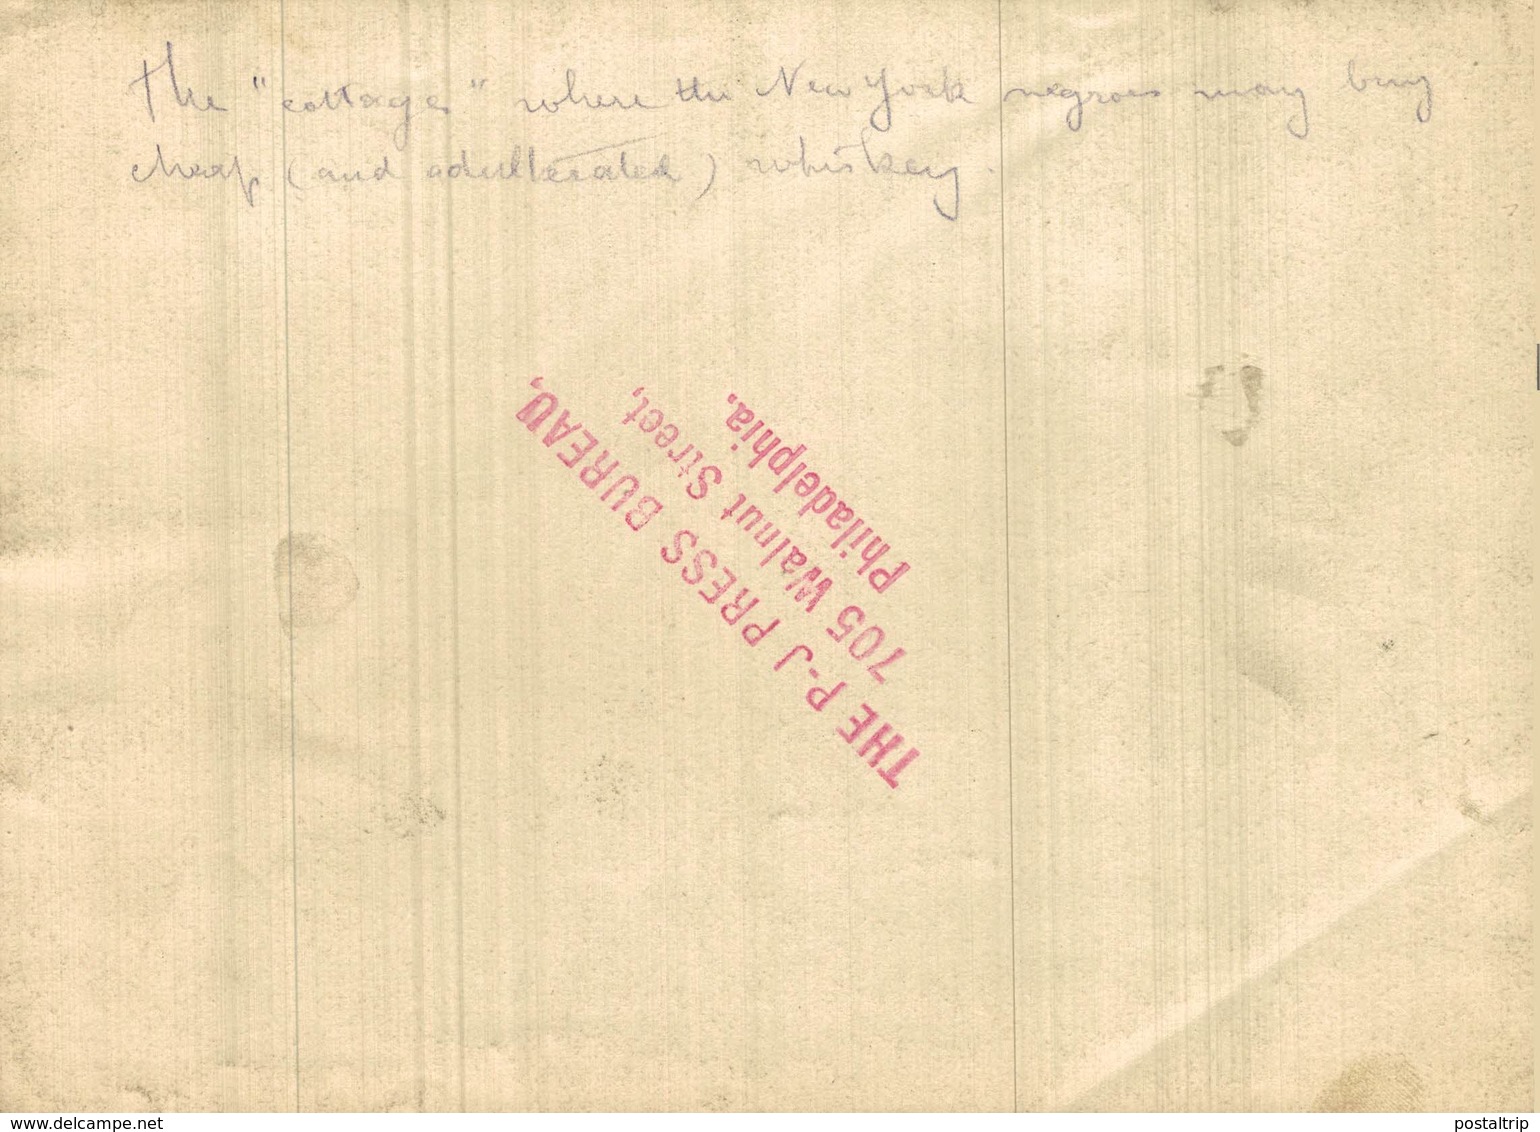 The "cottages" where the New York negroes may buy
cheap (and adulterated) whiskey.
THE P-J PRESS BUREAU,
705 Walnut Street,
Philadelphia.
www.delcampe.net
postaltrip